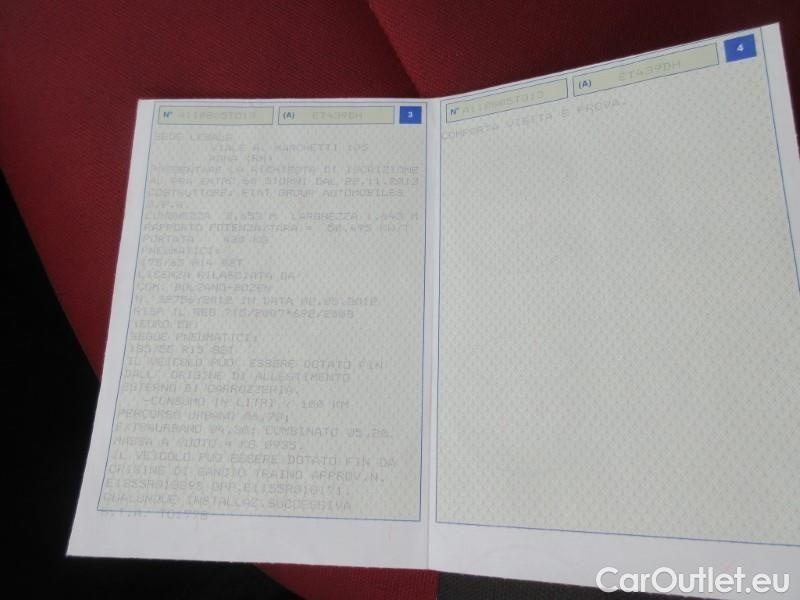 N° A110805T013 (A) ET439DH 3
SEDE LEGALE
VIALE A. MARCHETTI 105
ROMA (RM)
PRESENTARE LA RICHIESTA DI ISCRIZIONE
AL PRA ENTRO 60 GIORNI DAL 22.11.2013
COSTRUTTORE: FIAT GROUP AUTOMOBILES
S.P.A.
LUNGHEZZA 3,653 M LARGHEZZA 1,643 M
RAPPORTO POTENZA/TARA = 50,495 KW/T
PORTATA 430 KG
PNEUMATICI:
175/65 R14 82T
LICENZA RILASCIATA DA
COM. BOLZANO-BOZEN
N. 32756/2012 IN DATA 02.05.2012
RISP IL REG 715/2007*692/2008
(EURO 5B)
SEGUE PNEUMATICI:
185/55 R15 82T
IL VEICOLO PUO' ESSERE DOTATO FIN
DALL' ORIGINE DI ALLESTIMENTO
ESTERNO DI CARROZZERIA.
-CONSUMO IN LITRI X 100 KM
PERCORSO URBANO 06,70;
EXTRAURBANO 04,30; COMBINATO 05,20.
MASSA A VUOTO 4 KG 0935.
IL VEICOLO PUO ESSERE DOTATO FIN DA
ORIGINE DI GANCIO TRAINO APPROV.N.
OPP.E1155R010171.
QUALUNQUE INSTALLAZ.SUCCESSIVA
N° A110805T013 (A) ET439DH 4
COMPORTA VISITA E PROVA.
CarOutlet.eu